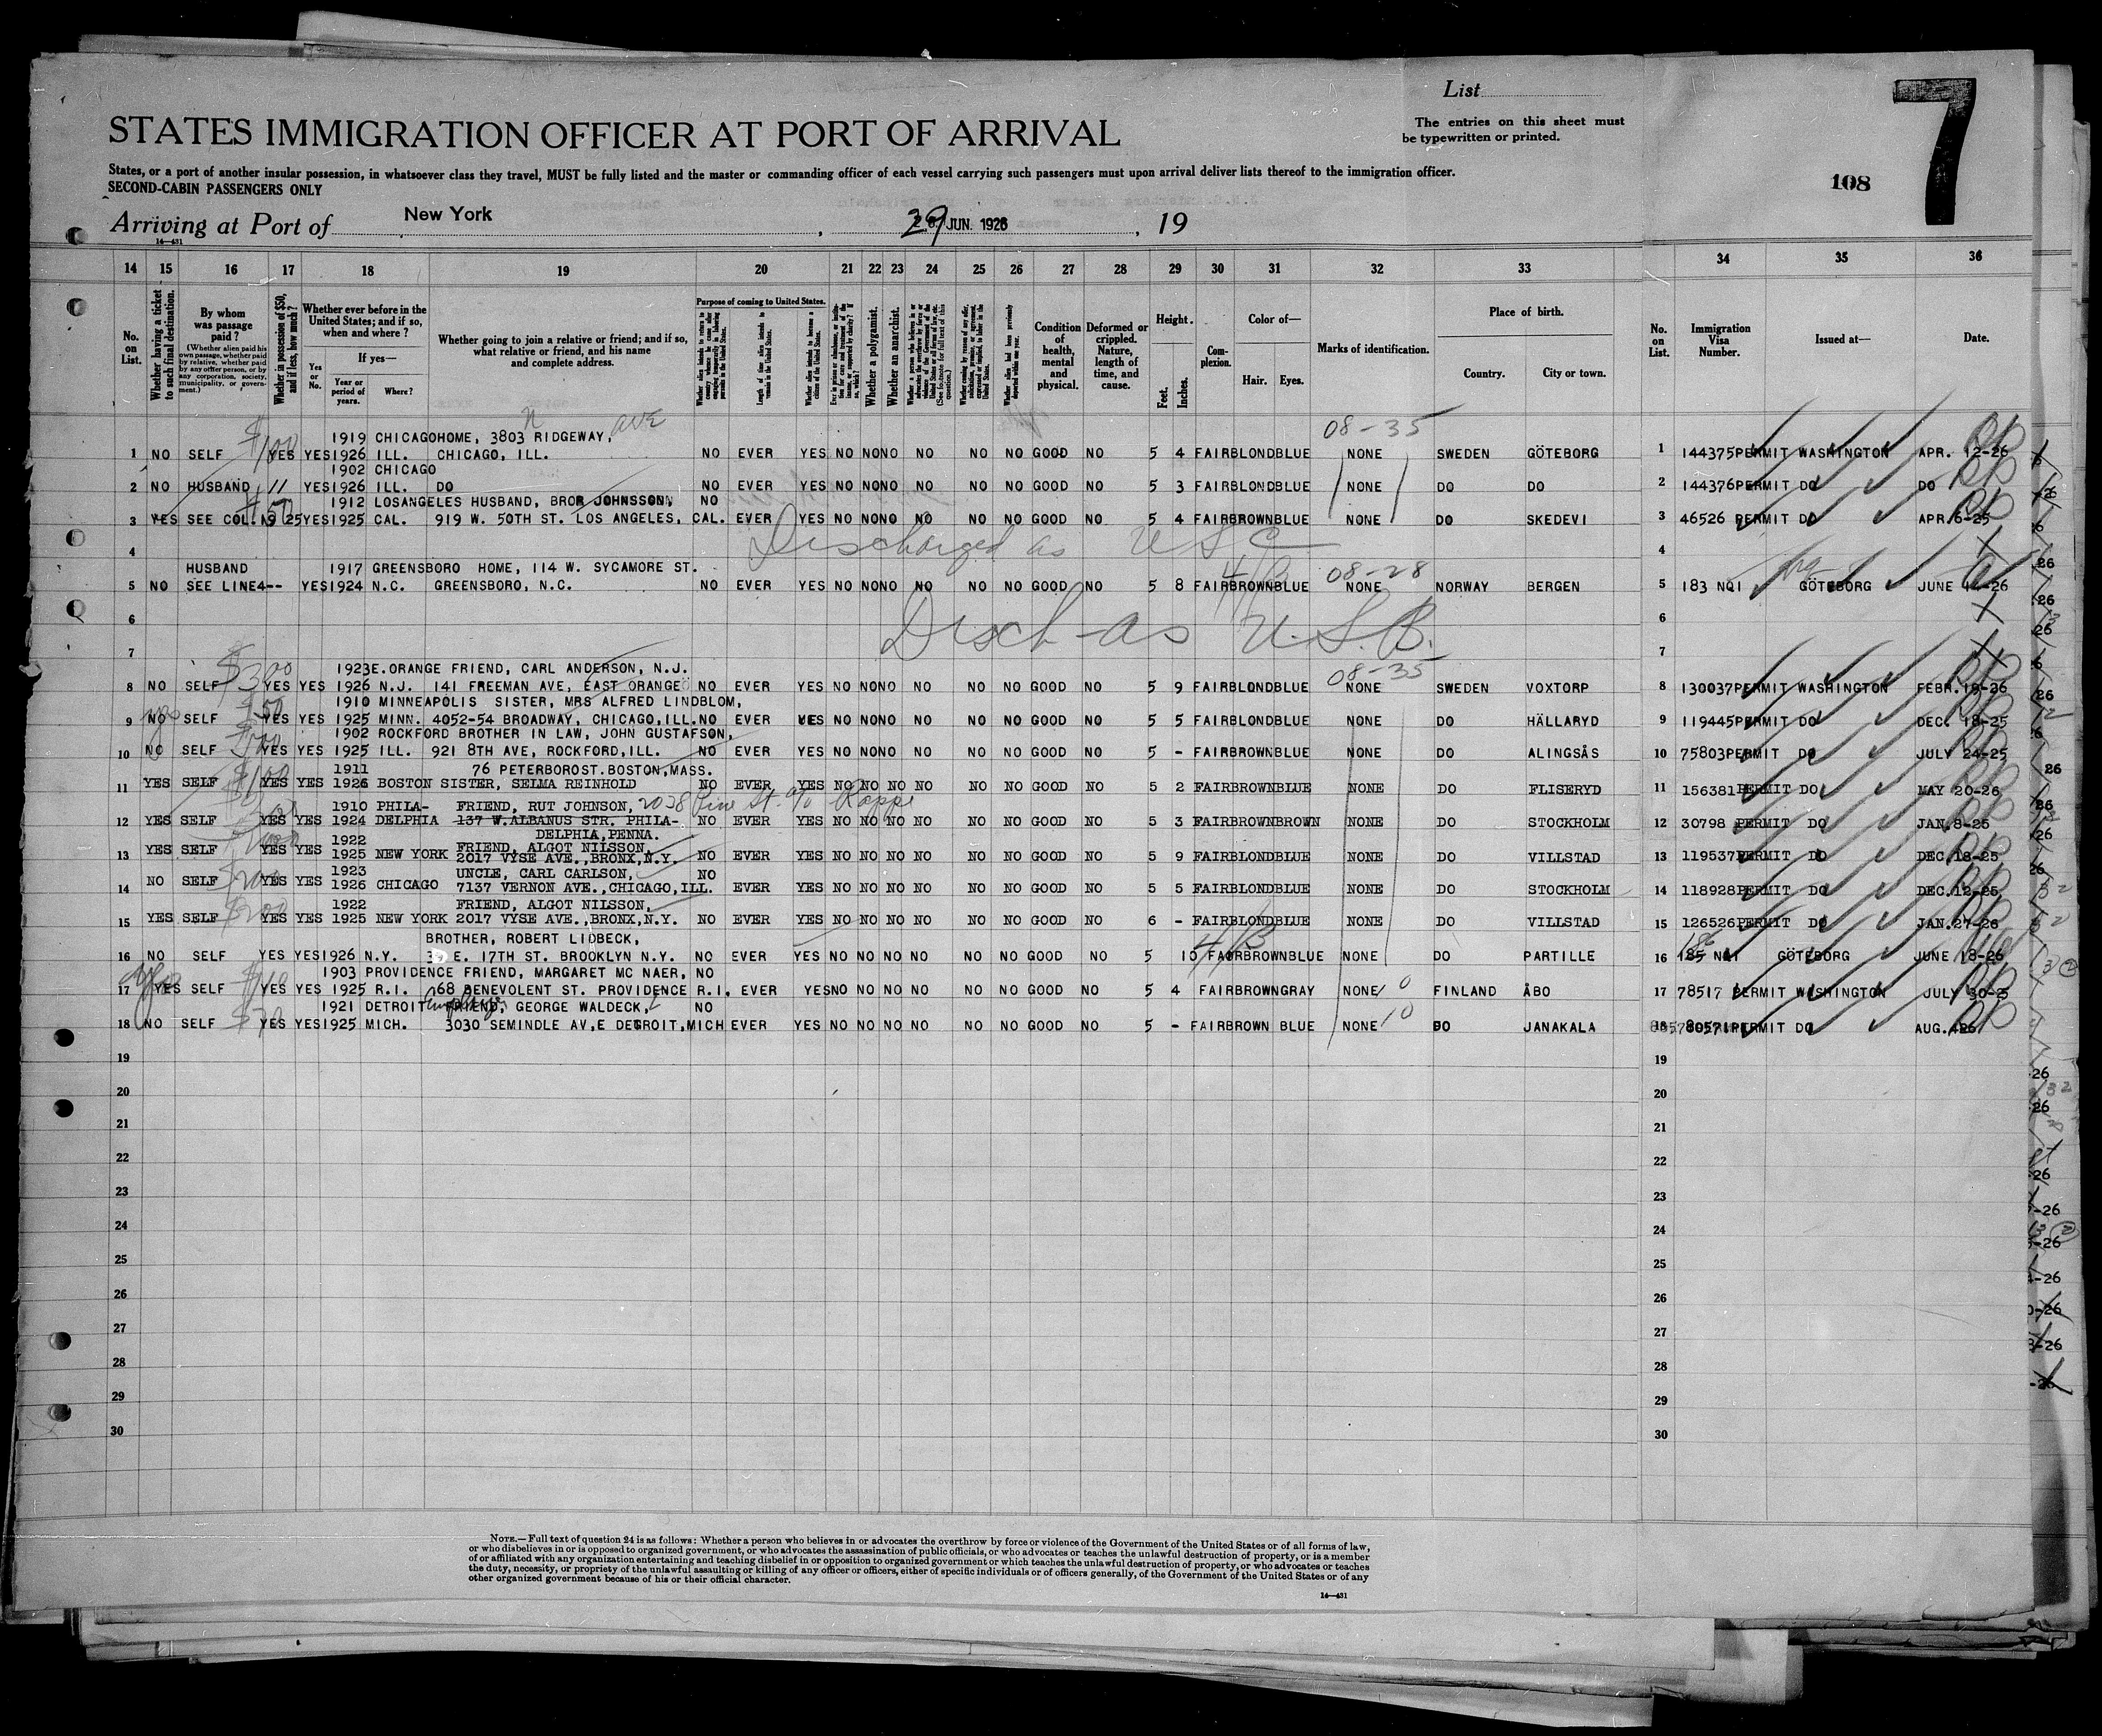 List
7
STATES IMMIGRATION OFFICER AT PORT OF ARRIVAL
The entries on this sheet must
be typewritten or printed.
States, or a port of another insular possession, in whatsoever class they travel, MUST be fully listed and the master or commanding officer of each vessel carrying such passengers must upon arrival deliver lists thereof to the immigration officer.
SECOND-CABIN PASSENGERS ONLY
108
Arriving at Port of New York , 29 JUN. 1926, 19
14—431
14 15 16 17 18 19 20 21 22 23 24 25 26 27 28 29 30 31 32 33 34 35 36
No. on List.
Whether having a ticket to such final destination.
By whom was passage paid?
(Whether alien paid his own passage, whether paid by relative, whether paid by any other person, or by any corporation, society, municipality, or government.)
Whether in possession of $50, and if less, how much?
Whether ever before in the United States; and if so, when and where?
Yes or No.
If yes—
Year or period of years.
Where?
Whether going to join a relative or friend; and if so, what relative or friend, and his name and complete address.
Purpose of coming to United States.
Whether a polygamist.
Whether an anarchist.
Condition of health, mental and physical.
Deformed or crippled. Nature, length of time, and cause.
Height.
Feet. Inches.
Complexion.
Color of—
Hair. Eyes.
Marks of identification.
Place of birth.
Country. City or town.
No. on List.
Immigration Visa Number.
Issued at—
Date.
N AVE 08-35
$100 1919 CHICAGO HOME, 3803 RIDGEWAY,
1 NO SELF YES YES 1926 ILL. CHICAGO, ILL. NO EVER YES NO NO NO NO NO NO GOOD NO 5 4 FAIR BLOND BLUE NONE SWEDEN GÖTEBORG 1 144375 PERMIT WASHINGTON APR. 12-26
1902 CHICAGO
2 NO HUSBAND 11 YES 1926 ILL. DO NO EVER YES NO NO NO NO NO NO GOOD NO 5 3 FAIR BLOND BLUE NONE DO DO 2 144376 PERMIT DO DO
$50 1912 LOSANGELES HUSBAND, BROR JOHNSSON, NO
3 YES SEE COL. 19 25 YES 1925 CAL. 919 W. 50TH ST. LOS ANGELES, CAL. EVER YES NO NO NO NO NO NO GOOD NO 5 4 FAIR BROWN BLUE NONE DO SKEDEVI 3 46526 PERMIT DO APR. 6-25
4 Discharged as USC 4
HUSBAND 1917 GREENSBORO HOME, 114 W. SYCAMORE ST. 4/3 08-28
5 NO SEE LINE 4 -- YES 1924 N.C. GREENSBORO, N.C. NO EVER YES NO NO NO NO NO NO GOOD NO 5 8 FAIR BROWN BLUE NONE NORWAY BERGEN 5 183 NQI GÖTEBORG JUNE 14-26
6 Disch as U.S.B. 6
7 7
$300 1923 E.ORANGE FRIEND, CARL ANDERSON, N.J. 08-35
8 NO SELF YES YES 1926 N.J. 141 FREEMAN AVE, EAST ORANGE NO EVER YES NO NO NO NO NO NO GOOD NO 5 9 FAIR BLOND BLUE NONE SWEDEN VOXTORP 8 130037 PERMIT WASHINGTON FEBR. 19-26
yes $50 1910 MINNEAPOLIS SISTER, MRS ALFRED LINDBLOM,
9 NO SELF YES YES 1925 MINN. 4052-54 BROADWAY, CHICAGO, ILL. NO EVER YES NO NO NO NO NO NO GOOD NO 5 5 FAIR BLOND BLUE NONE DO HÄLLARYD 9 119445 PERMIT DO DEC. 18-25
1902 ROCKFORD BROTHER IN LAW, JOHN GUSTAFSON,
10 NO SELF YES YES 1925 ILL. 921 8TH AVE, ROCKFORD, ILL. NO EVER YES NO NO NO NO NO NO GOOD NO 5 - FAIR BROWN BLUE NONE DO ALINGSÅS 10 75803 PERMIT DO JULY 24-25
$100 1911 76 PETERBORO ST. BOSTON, MASS.
11 YES SELF YES YES 1926 BOSTON SISTER, SELMA REINHOLD NO EVER YES NO NO NO NO NO NO GOOD NO 5 2 FAIR BROWN BLUE NONE DO FLISERYD 11 156381 PERMIT DO MAY 20-26
1910 PHILA- FRIEND, RUT JOHNSON, 2038 Pine St. c/o Rappe
12 YES SELF YES YES 1924 DELPHIA 137 W.ALBANUS STR. PHILA- NO EVER YES NO NO NO NO NO NO GOOD NO 5 3 FAIR BROWN BROWN NONE DO STOCKHOLM 12 30798 PERMIT DO JAN. 8-25
DELPHIA, PENNA.
1922 FRIEND, ALGOT NILSSON,
13 YES SELF YES YES 1925 NEW YORK 2017 VYSE AVE., BRONX, N.Y. NO EVER YES NO NO NO NO NO NO GOOD NO 5 9 FAIR BLOND BLUE NONE DO VILLSTAD 13 119537 PERMIT DO DEC. 18-25
$200 1923 UNCLE, CARL CARLSON, NO
14 NO SELF YES YES 1926 CHICAGO 7137 VERNON AVE., CHICAGO, ILL. EVER YES NO NO NO NO NO NO GOOD NO 5 5 FAIR BLOND BLUE NONE DO STOCKHOLM 14 118928 PERMIT DO DEC. 12-25
$200 1922 FRIEND, ALGOT NILSSON,
15 YES SELF YES YES 1925 NEW YORK 2017 VYSE AVE., BRONX, N.Y. NO EVER YES NO NO NO NO NO NO GOOD NO 6 - FAIR BLOND BLUE NONE DO VILLSTAD 15 126526 PERMIT DO JAN. 27-26
BROTHER, ROBERT LIDBECK, 4/3
16 NO SELF YES YES 1926 N.Y. E. 17TH ST. BROOKLYN N.Y. NO EVER YES NO NO NO NO NO NO GOOD NO 5 10 FAIR BROWN BLUE NONE DO PARTILLE 16 185 NQI GÖTEBORG JUNE 18-26
1903 PROVIDENCE FRIEND, MARGARET MC NAER, NO
17 YES SELF YES YES 1925 R.I. 68 BENEVOLENT ST. PROVIDENCE R.I. EVER YES NO NO NO NO NO NO GOOD NO 5 4 FAIR BROWN GRAY NONE FINLAND ÅBO 17 78517 PERMIT WASHINGTON JULY 30-25
1921 DETROIT FRIEND, GEORGE WALDECK, NO
18 NO SELF YES YES 1925 MICH. 3030 SEMINDLE AV, E DETROIT, MICH EVER YES NO NO NO NO NO NO GOOD NO 5 - FAIR BROWN BLUE NONE DO JANAKALA 18 80571 PERMIT DO AUG.
19 19
20 20
21 21
22 22
23 23
24 24
25 25
26 26
27 27
28 28
29 29
30 30
NOTE.—Full text of question 24 is as follows: Whether a person who believes in or advocates the overthrow by force or violence of the Government of the United States or of all forms of law,
or who disbelieves in or is opposed to organized government, or who advocates the assassination of public officials, or who advocates or teaches the unlawful destruction of property, or is a member
of or affiliated with any organization entertaining and teaching disbelief in or opposition to organized government or which teaches the unlawful destruction of property, or who advocates or teaches
the duty, necessity, or propriety of the unlawful assaulting or killing of any officer or officers, either of specific individuals or of officers generally, of the Government of the United States or of any
other organized government because of his or their official character.
14—431